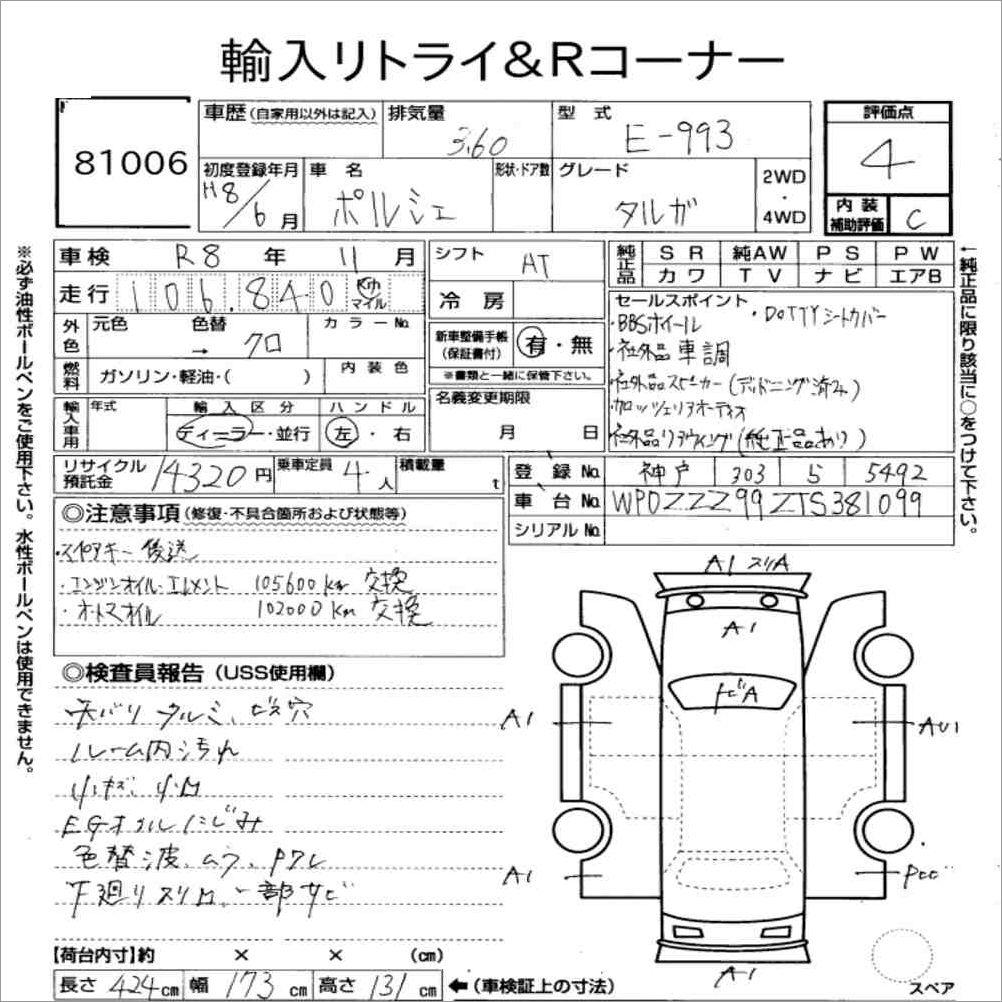 輸入リトライ&Rコーナー
81006
車歴(自家用以外は記入) 排気量 3.60 型式 E-993
評価点 4
初度登録年月 H8/6月 車名 ポルシェ 形状・ドア数 グレード タルガ 2WD・4WD
内装補助評価 C
車検 R8年 11月 シフト AT
走行 106.840 Km マイル 冷房
純正品 SR 純AW PS PW
カワ TV ナビ エアB
←純正品に限り該当に○をつけて下さい。
※必ず油性ボールペンをご使用下さい。水性ボールペンは使用できません。
外色 元色 → 色替 クロ カラーNo.
燃料 ガソリン・軽油・( ) 内装色
新車整備手帳(保証書付) 有・無
※書類と一緒に保管下さい。
セールスポイント
・BBSホイール ・DOTTYシートカバー
・社外品車調
・社外品スピーカー(デッドニング済み)
・カロッツェリアオーディオ
・社外品リアウイング(純正品あり)
輸入車用 年式 輸入区分 ディーラー・並行 ハンドル 左・右
名義変更期限 月 日
リサイクル預託金 14320円 乗車定員 4人 積載量 t
登録No. 神戸 303 ら 5492
車台No. WP0ZZZ99ZTS381099
シリアルNo.
◎注意事項(修復・不具合箇所および状態等)
・スペアキー後送
・エンジンオイル・エレメント 105600Km 交換
・オートマオイル 102000Km 交換
◎検査員報告(USS使用欄)
天バリタルミ、ビス穴
ルーム内汚れ
小キズ、小凹
EGオイルにじみ
色替 波、ムラ、Pワレ
下廻りスリ凹、一部サビ
A1 スリA
A1
トビA
A1
AU1
A1
A1
スペア
【荷台内寸】約 × × (cm)
長さ 424cm 幅 173cm 高さ 131cm ←(車検証上の寸法)